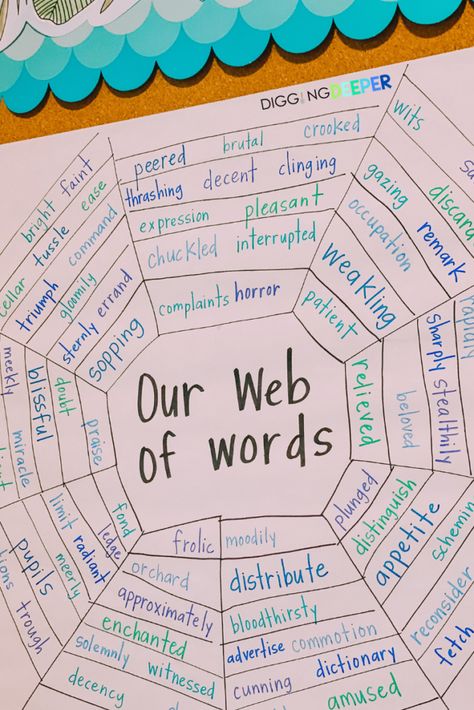 DIGGING DEEPER
Our Web
of words
peered brutal crooked
thrashing decent clinging
expression pleasant
chuckled interrupted
complaints horror
wits
gazing discard
occupation remark
weakling
patient
relieved
beloved
sharply stealthily
plunged
distinguish
appetite
scheming
reconsider
fetch
moodily
distribute
bloodthirsty
advertise commotion
cunning dictionary
amused
frolic
orchard
approximately
enchanted
solemnly witnessed
decency
fond
ledge
limit radiant
meerly
pupils
trough
praise
doubt
blissful
meekly miracle
bright faint
cellar tussle ease
triumph command
gloomily
sternly errand
sopping